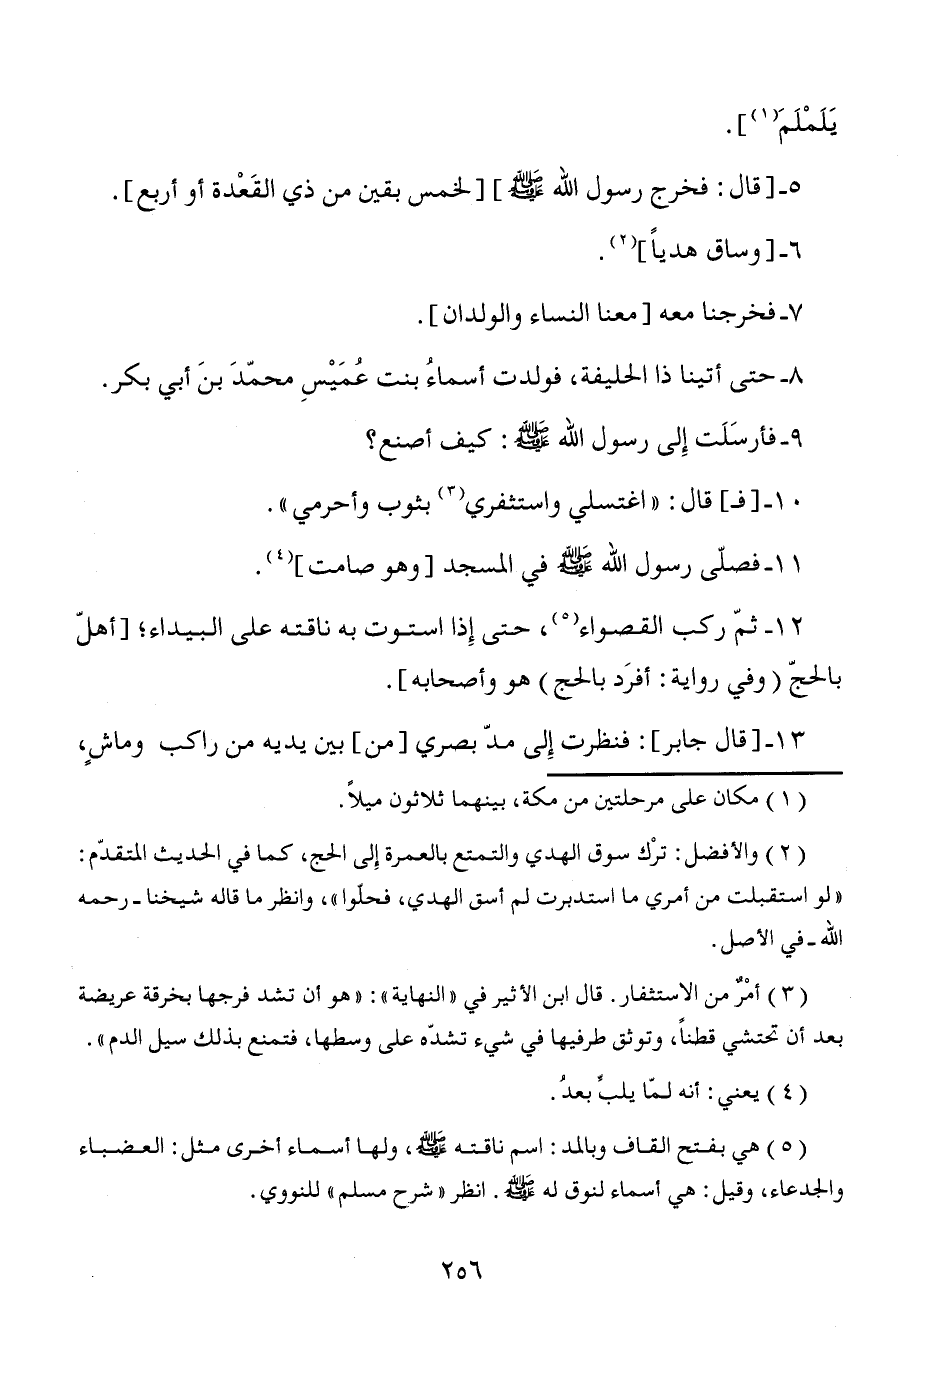 يَلَمْلَمَ(١)].
٥ـ[قال: فخرج رسول الله ﷺ] [لخمس بقين من ذي القَعْدة أو أربع].
٦ـ[وساق هدياً](٢).
٧ـ فخرجنا معه [معنا النساء والولدان].
٨ـ حتى أتينا ذا الحليفة، فولدت أسماءُ بنت عُمَيْسٍ محمّدَ بنَ أبي بكر.
٩ـ فأرسَلَت إلى رسول الله ﷺ: كيف أصنع؟
١٠ـ[فـ] قال: «اغتسلي واستثفري(٣) بثوب وأحرمي».
١١ـ فصلّى رسول الله ﷺ في المسجد [وهو صامت](٤).
١٢ـ ثمّ ركب القصواء(٥)، حتى إذا استوت به ناقته على البيداء؛ [أهلّ
بالحجّ (وفي رواية: أفرَد بالحج) هو وأصحابه].
١٣ـ[قال جابر]: فنظرت إلى مدّ بصري [من] بين يديه من راكب وماشٍ،
(١) مكان على مرحلتين من مكة، بينهما ثلاثون ميلاً.
(٢) والأفضل: ترْك سوق الهدي والتمتع بالعمرة إلى الحج، كما في الحديث المتقدّم:
«لو استقبلت من أمري ما استدبرت لم أسق الهدي، فحلّوا»، وانظر ما قاله شيخنا ـ رحمه
الله ـ في الأصل.
(٣) أمْرٌ من الاستثفار. قال ابن الأثير في «النهاية»: «هو أن تشد فرجها بخرقة عريضة
بعد أن تحتشي قطناً، وتوثق طرفيها في شيء تشدّه على وسطها، فتمنع بذلك سيل الدم».
(٤) يعني: أنه لمّا يلبِّ بعدُ.
(٥) هي بفتح القاف وبالمد: اسم ناقته ﷺ، ولها أسماء أخرى مثل: العضباء
والجدعاء، وقيل: هي أسماء لنوق له ﷺ. انظر «شرح مسلم» للنووي.
٢٥٦